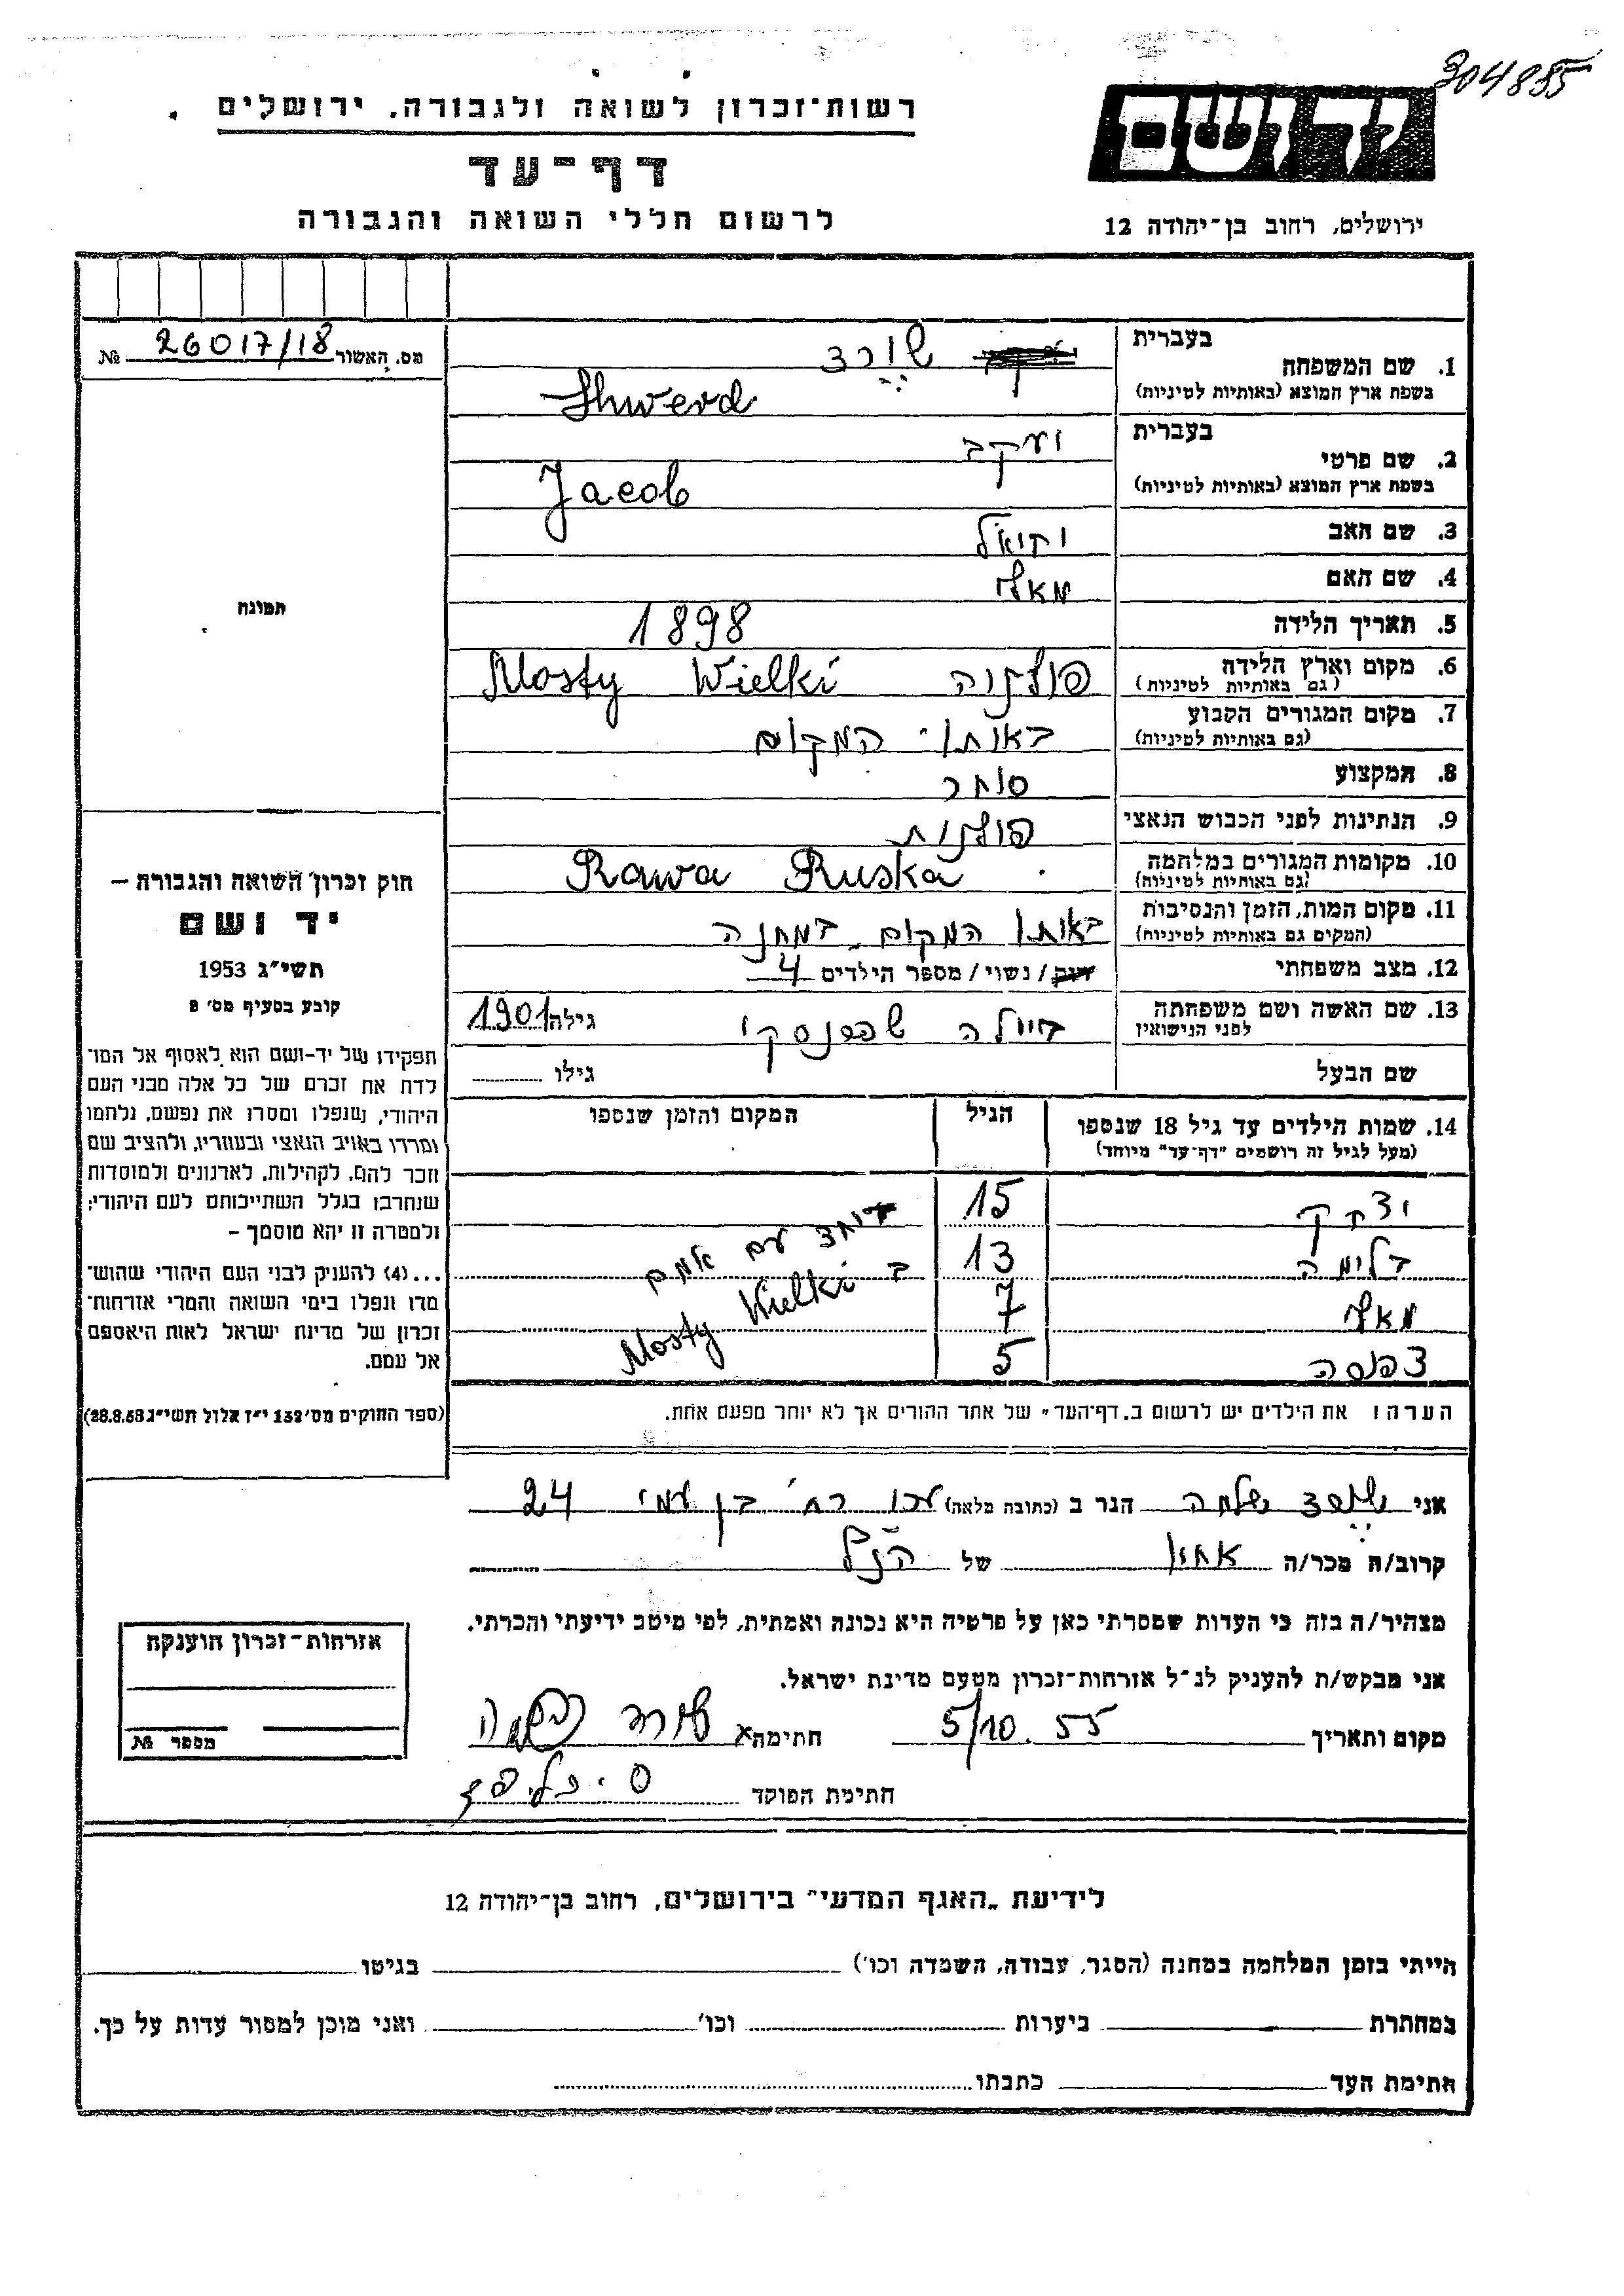 304885
רשות־זכרון לשואה ולגבורה, ירושלים
דף־עד
לרשום חללי השואה והגבורה
יד ושם
ירושלים, רחוב בן־יהודה 12
מס. האשור 26017/18 №
תמונה
חוק זכרון השואה והגבורה –
יד ושם
תשי״ג 1953
קובע בסעיף מס׳ 2
תפקידו של יד-ושם הוא לאסוף אל המו־
לדת את זכרם של כל אלה מבני העם
היהודי, שנפלו ומסרו את נפשם, נלחמו
ומרדו באויב הנאצי ובעוזריו, ולהציב שם
וזכר להם, לקהילות, לארגונים ולמוסדות
שנחרבו בגלל השתייכותם לעם היהודי;
ולמטרה זו יהא מוסמך –
...(4) להעניק לבני העם היהודי שהוש־
מדו ונפלו בימי השואה והמרי אזרחות־
זכרון של מדינת ישראל לאות היאספם
אל עמם.
(ספר החוקים מס׳ 132 י״ז אלול תשי״ג 28.8.53)
בעברית
1. שם המשפחה שורד
בשפת ארץ המוצא (באותיות לטיניות) Shwerd
בעברית
2. שם פרטי יעקב
בשפת ארץ המוצא (באותיות לטיניות) Jacob
3. שם האב
4. שם האם
5. תאריך הלידה 1898
6. מקום וארץ הלידה פולניה Mosty Wielki
(גם באותיות לטיניות)
7. מקום המגורים הקבוע באותו המקום
(גם באותיות לטיניות)
8. המקצוע סוחר
9. הנתינות לפני הכבוש הנאצי פולנית
10. מקומות המגורים במלחמה Rawa Ruska
(גם באותיות לטיניות)
11. מקום המות, הזמן והנסיבות באותו המקום במחנה
(המקום גם באותיות לטיניות)
12. מצב משפחתי רוק / נשוי / מספר הילדים 4
13. שם האשה ושם משפחתה גילה 1901
לפני הנישואין
שם הבעל גילו
14. שמות הילדים עד גיל 18 שנספו הגיל המקום והזמן שנספו
(מעל לגיל זה רושמים "דף־עד" מיוחד)
יצחק 15
13
7
5
ביחד עם אמם
ב Mosty Wielki
הערה: את הילדים יש לרשום ב„דף־העד" של אחד ההורים אך לא יותר מפעם אחת.
אני שלמה הגר ב (כתובת מלאה) עכו רח׳ בן עמי 24
קרוב/ה מכר/ה של הנ״ל
מצהיר/ה בזה כי העדות שמסרתי כאן על פרטיה היא נכונה ואמתית, לפי מיטב ידיעתי והכרתי.
אני מבקש/ת להעניק לנ״ל אזרחות־זכרון מטעם מדינת ישראל.
מקום ותאריך 5/10.55 חתימה
חתימת הפוקד
אזרחות־זכרון הוענקה
מספר №
לידיעת „האגף המדעי" בירושלים, רחוב בן־יהודה 12
הייתי בזמן המלחמה במחנה (הסגר, עבודה, השמדה וכו׳) בגיטו
במחתרת ביערות וכו׳ ואני מוכן למסור עדות על כך.
חתימת העד כתבתו